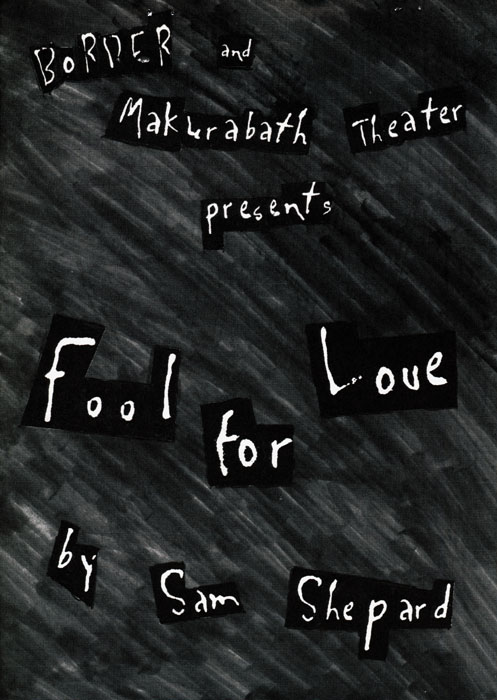 BORDER and
Makurabath Theater
presents
Fool for Love
by Sam Shepard